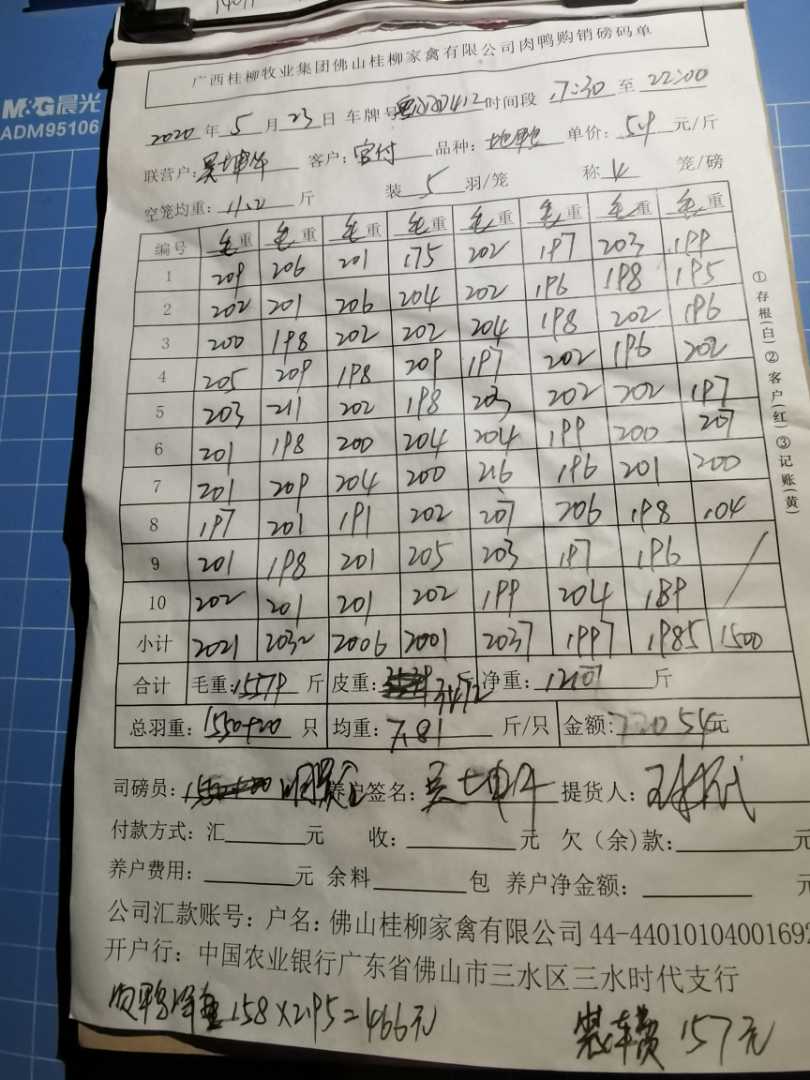 M&G晨光
ADM95106
广西桂柳牧业集团佛山桂柳家禽有限公司肉鸭购销磅码单
2020年5月23日 车牌号 时间段 17:30 至 22:00
联营户: 客户: 品种: 单价: 5.9 元/斤
空笼均重: 11.2 斤 装 5 羽/笼 称 4 笼/磅
编号 毛重 毛重 毛重 毛重 毛重 毛重 毛重 毛重
1 209 206 201 175 202 197 203 199
2 202 201 206 204 202 196 198 195
3 200 198 202 202 204 198 202 196
4 205 209 198 209 197 202 196 202
5 203 211 202 198 203 202 202 197
6 201 198 200 204 204 199 200 207
7 201 209 204 200 216 196 201 200
8 197 201 191 202 207 206 198 104
9 201 198 201 205 203 197 196
10 202 201 201 202 199 204 189
小计 2021 2032 2006 2001 2037 1997 1985 1500
合计 毛重: 15579 斤 皮重: 3472 斤 净重: 12107 斤
总羽重: 1550+20 只 均重: 7.81 斤/只 金额: 元
司磅员: 养户签名: 提货人:
付款方式: 汇 元 收: 元 欠(余)款: 元
养户费用: 元 余料 包 养户净金额: 元
公司汇款账号: 户名: 佛山桂柳家禽有限公司 44-44010104001692
开户行: 中国农业银行广东省佛山市三水区三水时代支行
158×2.95=466元 装车费 157元
①存根(白)②客户(红)③记账(黄)